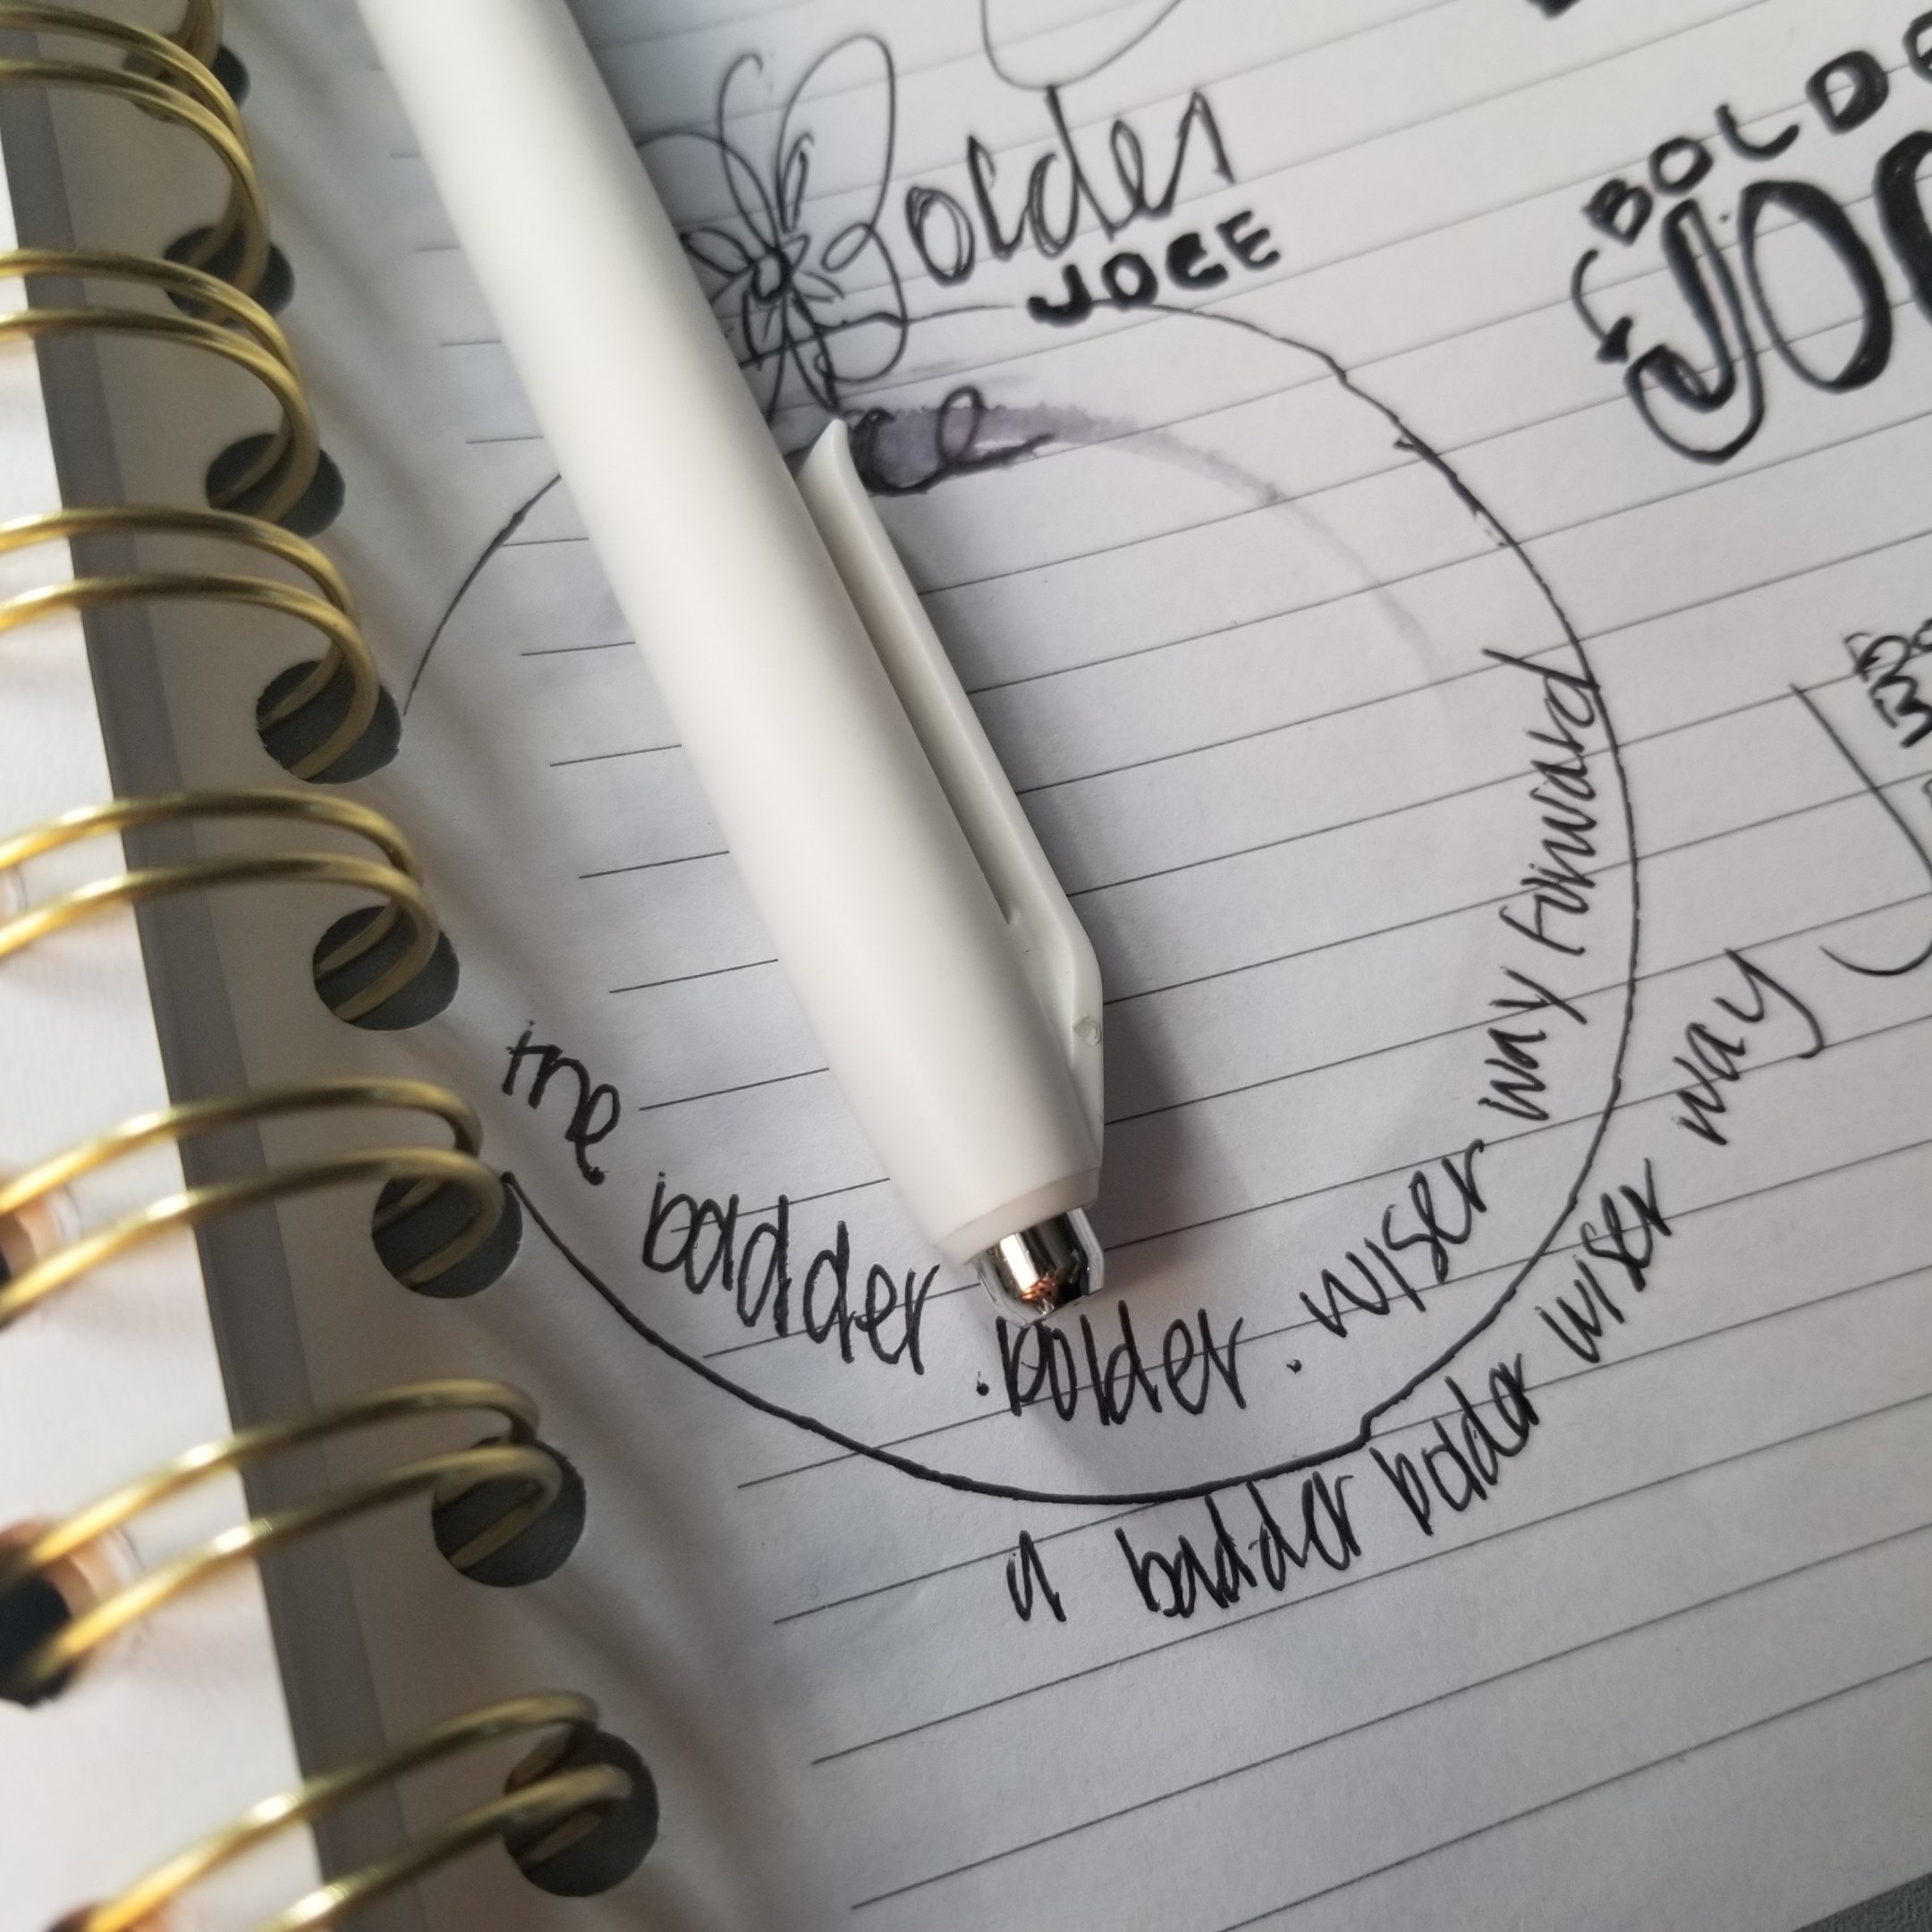 Bolder
JOCE
BOLDE
JO
ce
the badder . bolder . wiser way forward
a badder bolder wiser way